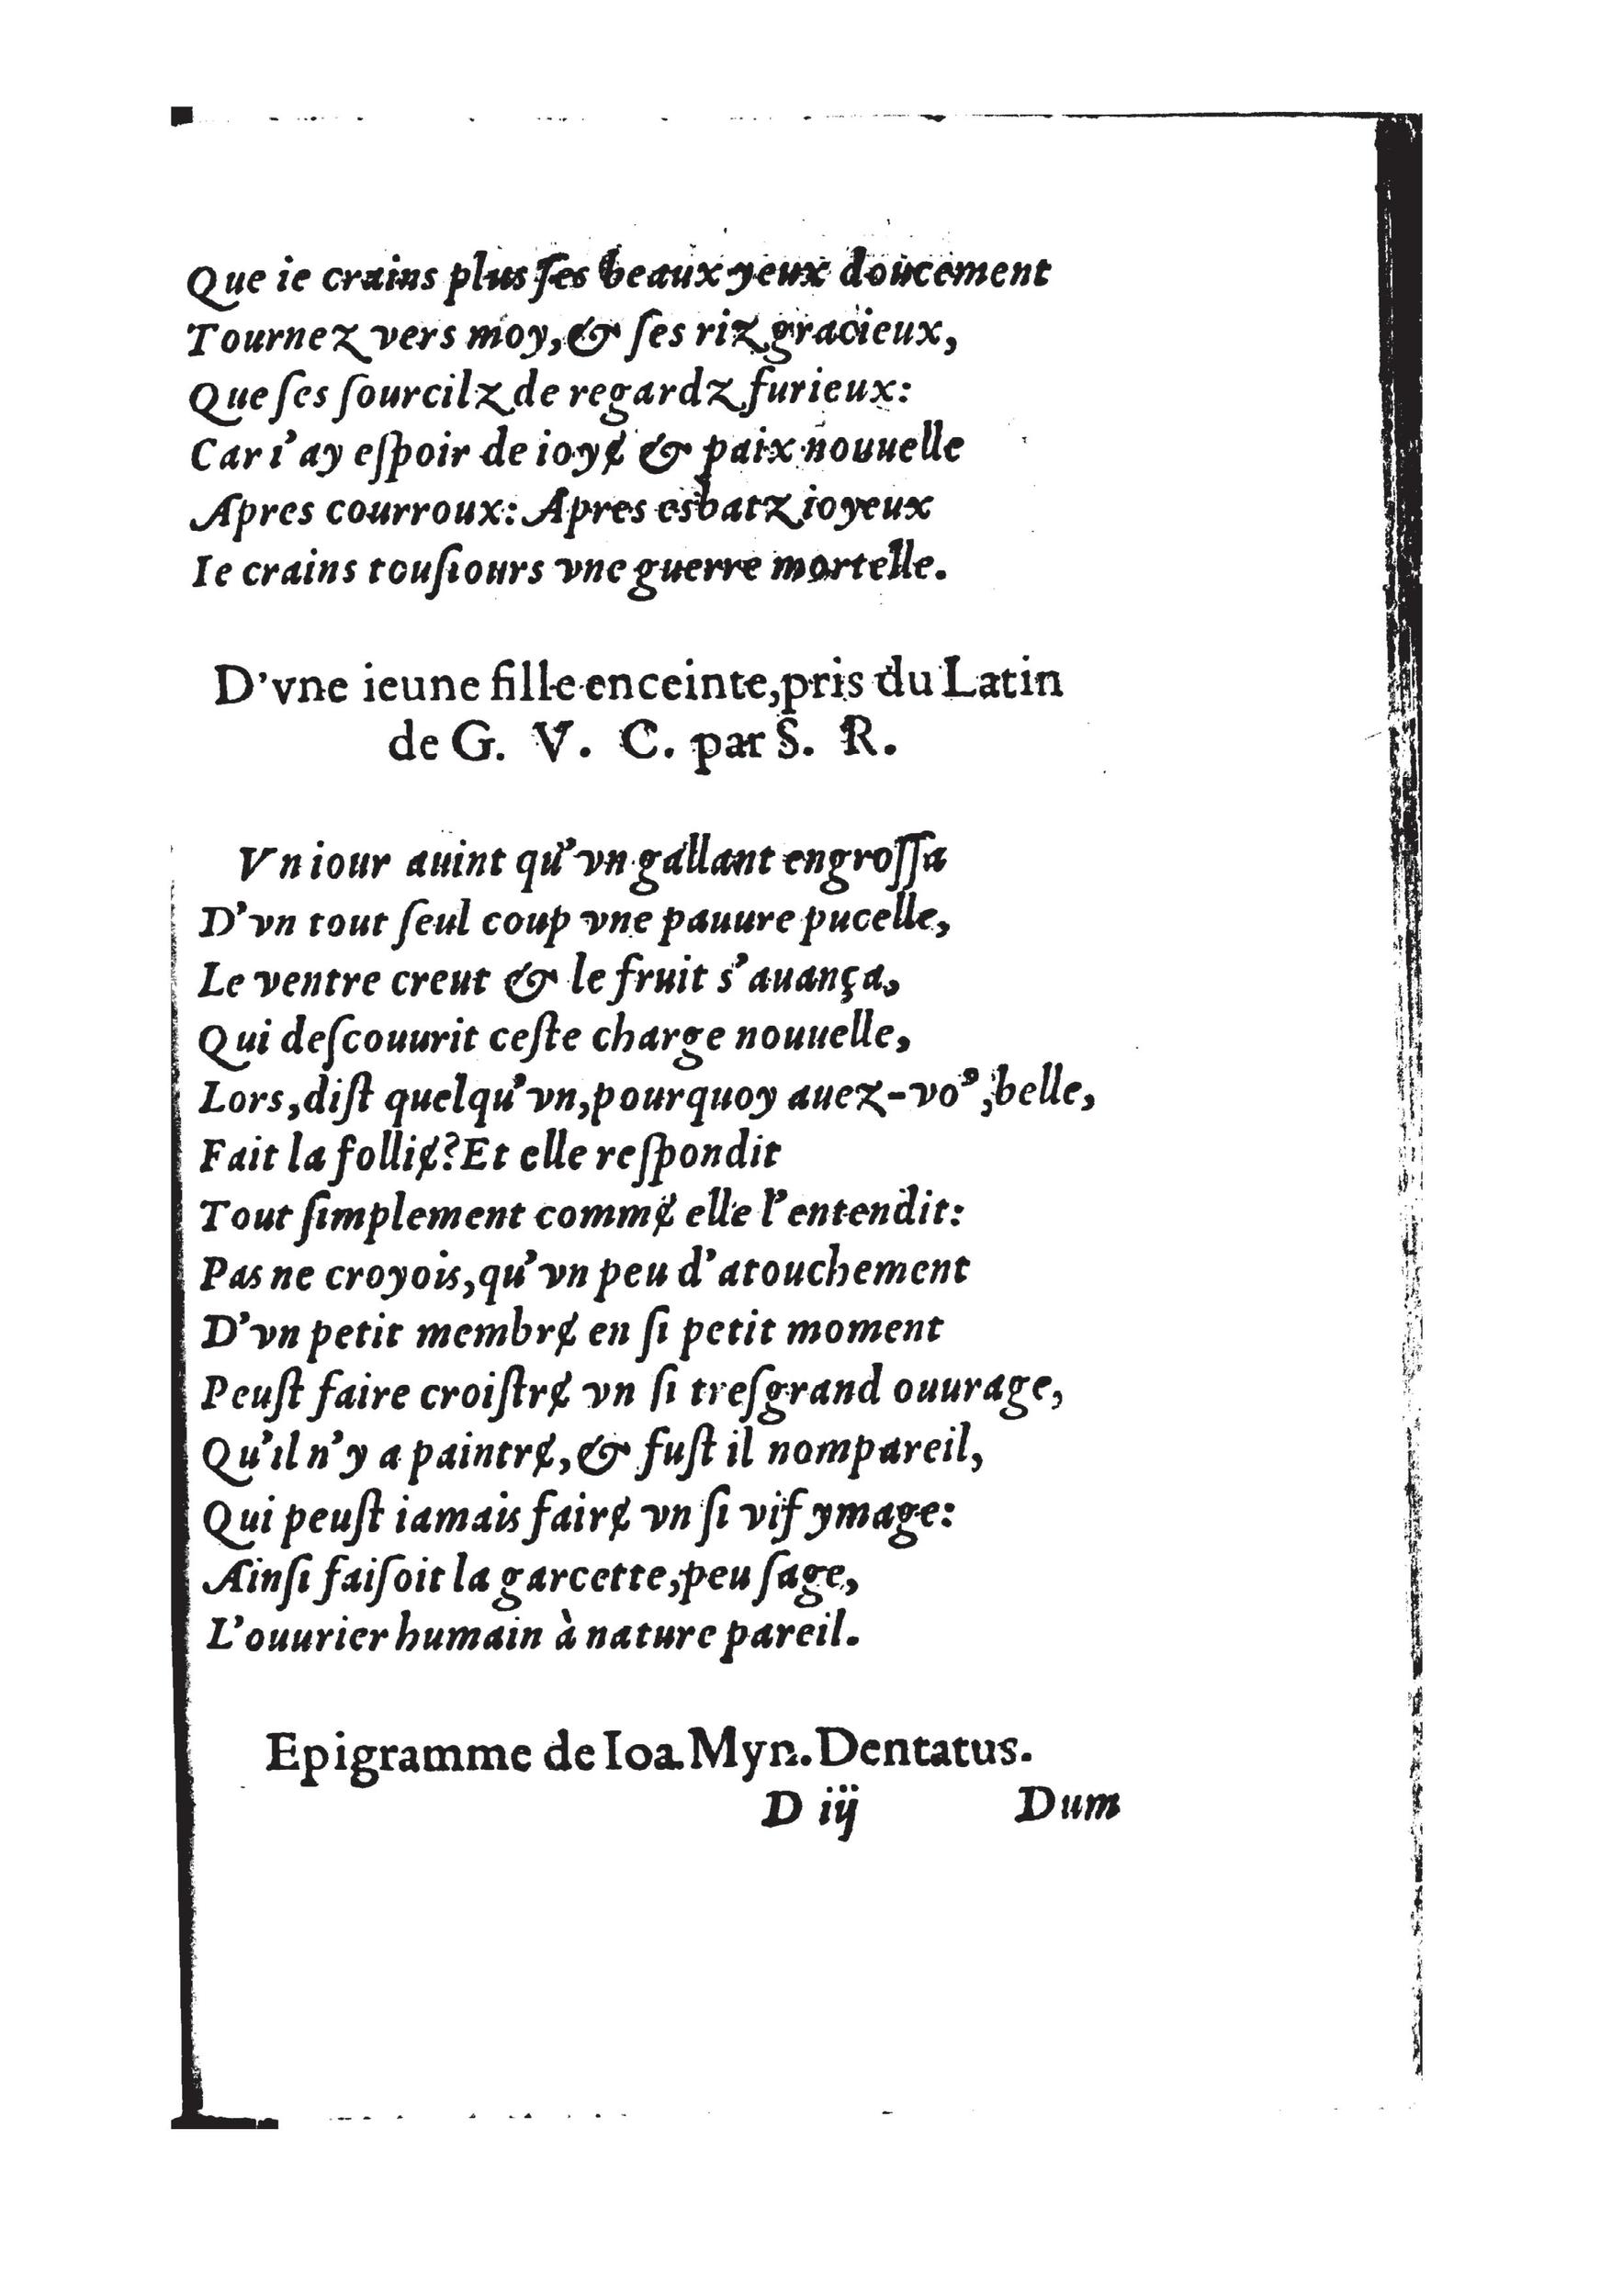 Que ie crains plus ſes beaux yeux doucement
Tournez vers moy, & ſes riz gracieux,
Que ſes ſourcilz de regardz furieux:
Car i'ay eſpoir de ioyɇ & paix nouuelle
Apres courroux: Apres esbatz ioyeux
Ie crains touſiours vne guerre mortelle.
D'vne ieune fille enceinte, pris du Latin
de G. V. C. par S. R.
Vn iour auint qu'vn gallant engroſſa
D'vn tout ſeul coup vne pauure pucelle,
Le ventre creut & le fruit s'auança,
Qui deſcouurit ceſte charge nouuelle,
Lors, diſt quelqu'vn, pourquoy auez-vo⁹, belle,
Fait la folliɇ? Et elle reſpondit
Tout ſimplement commɇ elle l'entendit:
Pas ne croyois, qu'vn peu d'atouchement
D'vn petit membrɇ en ſi petit moment
Peuſt faire croiſtrɇ vn ſi treſgrand ouurage,
Qu'il n'y a paintrɇ, & fuſt il nompareil,
Qui peuſt iamais fairɇ vn ſi vif ymage:
Ainſi faiſoit la garcette, peu ſage,
L'ouurier humain à nature pareil.
Epigramme de Ioa. Myn. Dentatus.
D iij Dum